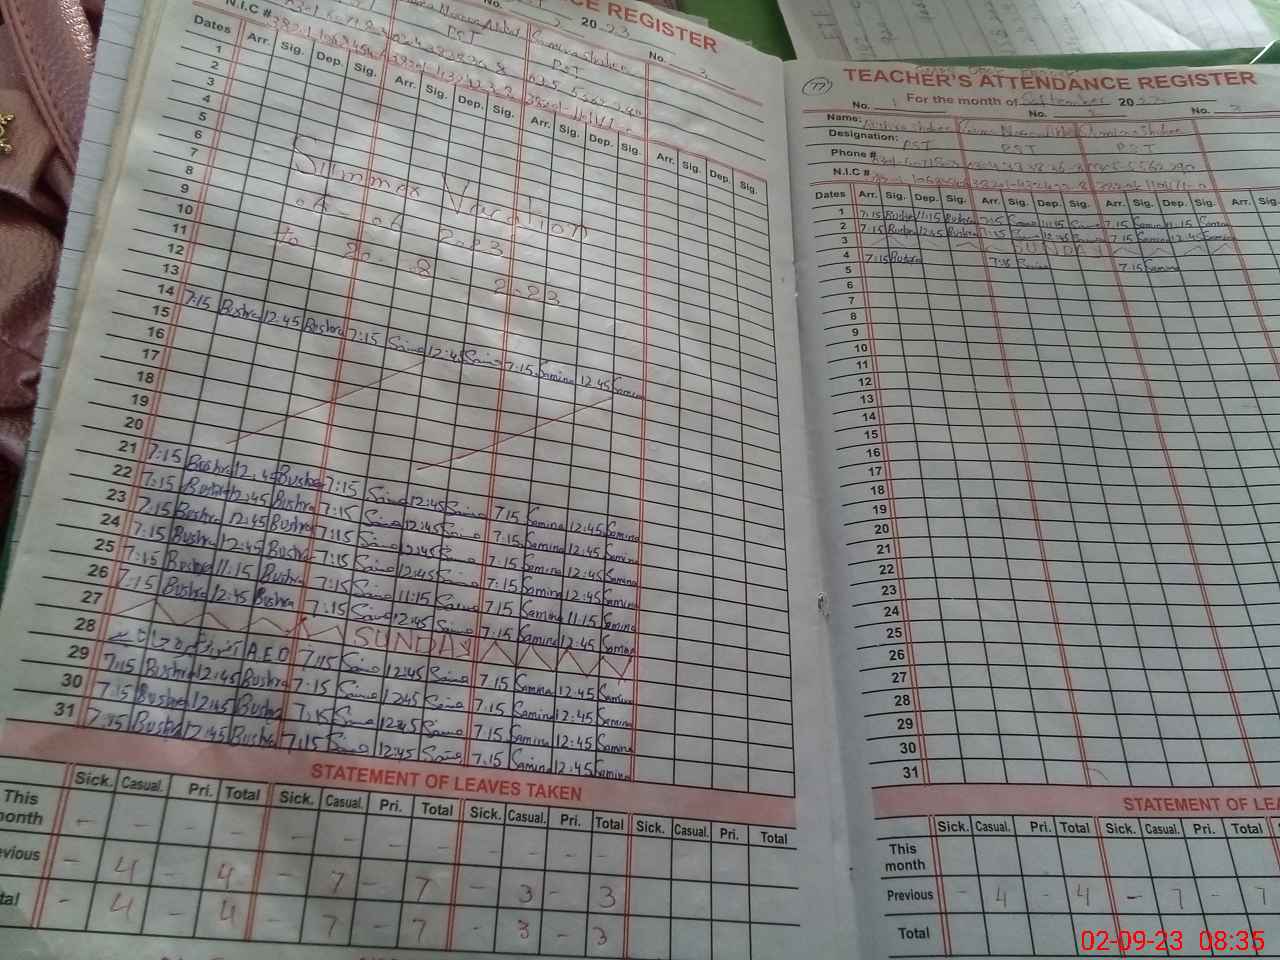 CE REGISTER
No.
20 23
No. 3
N.I.C #
PST
PST
Dates Arr. Sig. Dep. Sig. Arr. Sig. Dep. Sig. Arr. Sig. Dep. Sig. Arr. Sig. Dep. Sig.
1
2
3
4
5
6
7
8
9
10
11
12
13
Summer Vacation
06 - 06 2023
to 20 - 8 - 2023
14 7:15 Bushra 12:45 Bushra 7:15 Saima 12:45 Saima 7:15 Samina 12:45 Samina
15
16
17
18
19
20
21 7:15 Bushra 12:45 Bushra 7:15 Saima 12:45 Saima 7:15 Samina 12:45 Samina
22 7:15 Bushra 12:45 Bushra 7:15 Saima 12:45 Saima 7:15 Samina 12:45 Samina
23 7:15 Bushra 12:45 Bushra 7:15 Saima 12:45 Saima 7:15 Samina 12:45 Samina
24 7:15 Bushra 12:45 Bushra 7:15 Saima 12:45 Saima 7:15 Samina 12:45 Samina
25 7:15 Bushra 11:15 Bushra 7:15 Saima 11:15 Saima 7:15 Samina 11:15 Samina
26 7:15 Bushra 12:45 Bushra 7:15 Saima 12:45 Saima 7:15 Samina 12:45 Samina
27 SUNDAY
28 A.E.O 7:15 Saima 12:45 Saima 7:15 Samina 12:45 Samina
29 7:15 Bushra 12:45 Bushra 7:15 Saima 12:45 Saima 7:15 Samina 12:45 Samina
30 7:15 Bushra 12:45 Bushra 7:15 Saima 12:45 Saima 7:15 Samina 12:45 Samina
31 7:15 Bushra 12:45 Bushra 7:15 Saima 12:45 Saima 7:15 Samina 12:45 Samina
STATEMENT OF LEAVES TAKEN
Sick. Casual. Pri. Total Sick. Casual. Pri. Total Sick. Casual. Pri. Total Sick. Casual. Pri. Total
This month - - - - - - - - - - - -
evious - 4 - 4 - 7 - 7 - 3 - 3
tal - 4 - 4 - 7 - 7 - 3 - 3
77
TEACHER'S ATTENDANCE REGISTER
For the month of September 2023
No. 1 No. 2 No. 3
Name:
Designation: PST PST PST
Phone #
N.I.C #
Dates Arr. Sig. Dep. Sig. Arr. Sig. Dep. Sig. Arr. Sig. Dep. Sig. Arr. Sig.
1 7:15 Bushra 11:15 Bushra 7:15 Saima 11:15 Saima 7:15 Samina 11:15 Samina
2 7:15 Bushra 12:45 Bushra 7:15 Saima 12:45 Saima 7:15 Samina 12:45 Samina
3 SUNDAY
4 7:15 Bushra 7:15 Saima 7:15 Samina
5
6
7
8
9
10
11
12
13
14
15
16
17
18
19
20
21
22
23
24
25
26
27
28
29
30
31
STATEMENT OF LEA
Sick. Casual. Pri. Total Sick. Casual. Pri. T
This month
Previous - 4 - 4 - 7 - 7
Total
02-09-23 08:35